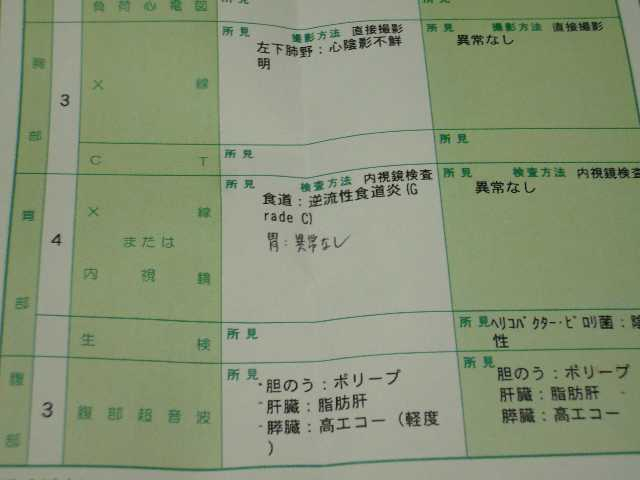 負荷心電図
所見
所見 撮影方法 直接撮影
左下肺野：心陰影不鮮
明
所見 撮影方法 直接撮影
異常なし
胸部
3
X線
CT
所見
所見
胃部
4
X線
または
内視鏡
所見 検査方法 内視鏡検査
食道：逆流性食道炎(G
rade C)
胃：異常なし
所見 検査方法 内視鏡検査
異常なし
生検
所見
所見 ﾍﾘｺﾊﾞｸﾀｰ･ﾋﾟﾛﾘ菌：陰
性
腹部
3
腹部超音波
所見
・胆のう：ポリープ
・肝臓：脂肪肝
・膵臓：高エコー（軽度
）
所見
胆のう：ポリープ
肝臓：脂肪肝
膵臓：高エコー